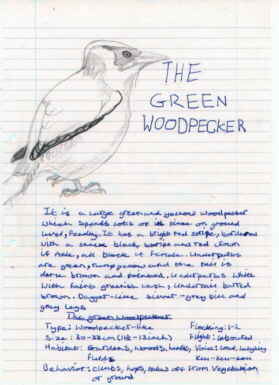 THE
GREEN
WOODPECKER
It is a large green and yellow woodpecker
which spends lots of its time on ground
level, feeding. It has a bright red stripe, bordered
with a black stripe and red down
if male, all black if female. Upperparts
are green, rump yellow and the tail is
dark brown and patterned, underparts white
with faint greyish wash,
brown. Dagger-like grey bill and
grey legs
The green woodpecker
Type: Woodpecker-like
Flocking: 1-2
Size: 30-33cm (12-13inch)
Flight:
Habitat: Gardens, woods, heaths,
Voice: Loud, laughing
Fields
Kew-kew-kew
Behavior: climbs, hops, takes off from vegetation
or ground